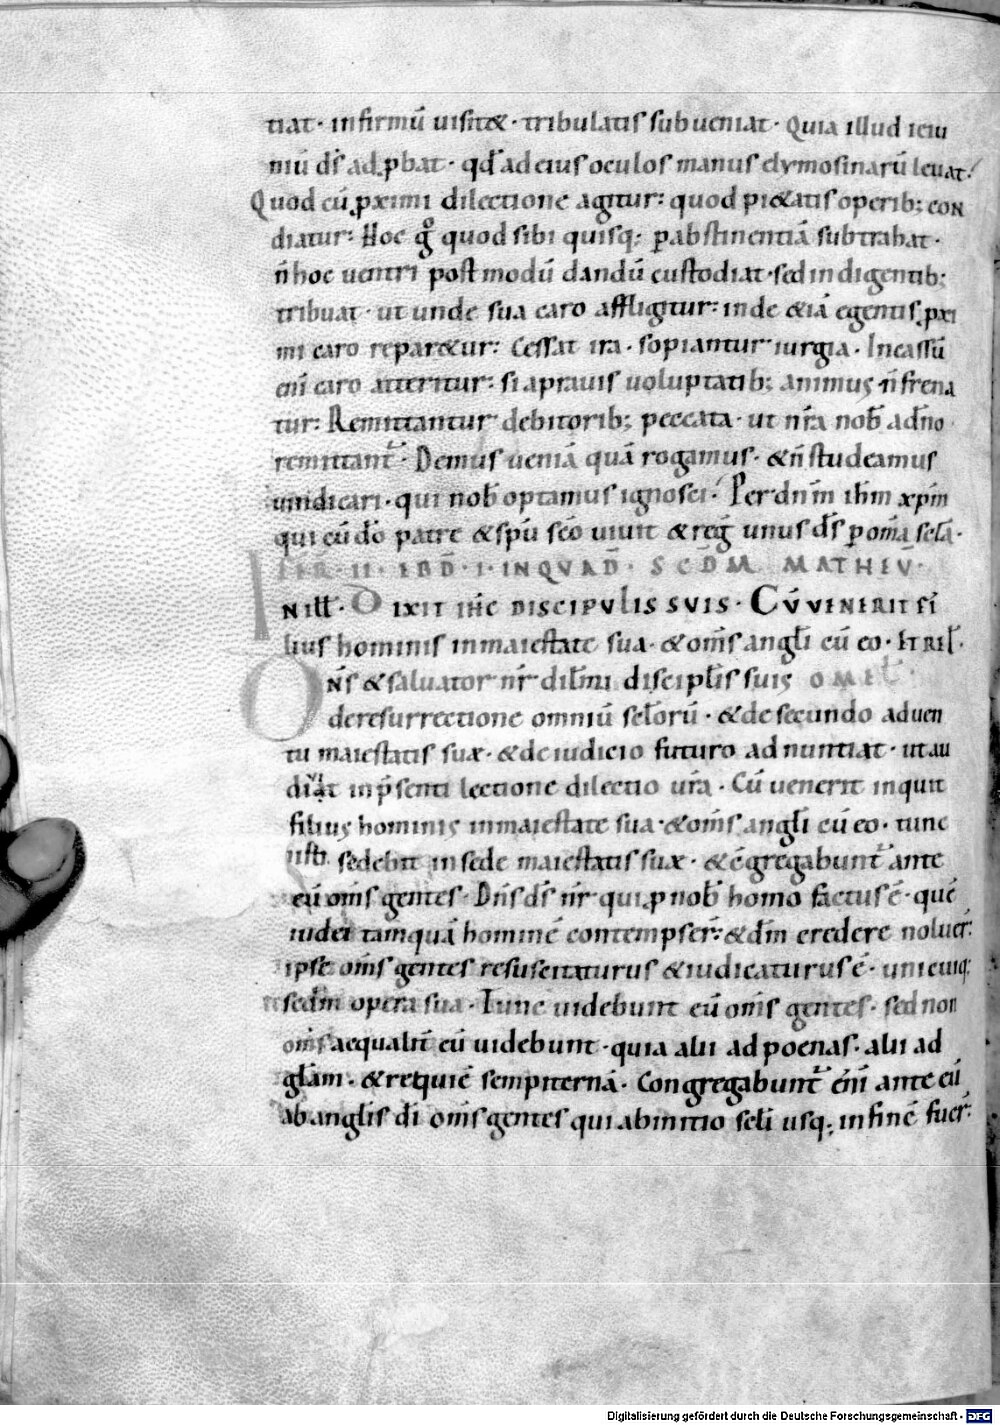 tiat · infirmū uisit& · tribulatis subueniat · Quia illud ieiu
niū ds̄ ad ꝓbat · qd̄ ad eius oculos manus elymosinarū leuat ·
Quod cū ꝓximi dilectione agitur : quod pi&atis operib; con
diatur : Hoc gͦ quod sibi quisq; ꝑ abstinentiā subtrahat ·
n̄ hoc uentri post modū dandū custodiat · sed indigentib;
tribuat · ut unde sua caro affligitur : inde &iā egentis ꝓxi
mi caro repar&ur : Cessat ira · sopiantur iurgia · Incassū
eni̅ caro atteritur : si a prauis uoluptatib; animus n̄ frena
tur : Remittantur debitorib; peccata · ut nr̄a nob̄ ad̄no
remittant̄ · Demus ueniā quā rogamus · & n̄ studeamus
uindicari · qui nob̄ optamus ignosci · Per dn̄m ih̄m xp̄m
qui cū dō patre & sp̄u sc̄o uiuit & reḡ unus ds̄ ꝑ om̄a sc̄la ·
FER · II · EBD̄ · I · IN QVAD̄ · SCD̄M MATHEV̄ ·
IN ill̄ · DIXIT IHC̄ DISCIPVLIS SVIS · CV̄ VENERIT FI
lius hominis in maiestate sua · & om̄s angl̄i cū eo · ET REL̄ ·
DN̄s & saluator nr̄ dil̄mi discipl̄is suis OMIL̄ ·
de resurrectione omniū sc̄lorū · & de secundo aduen
tu maiestatis suæ · & de iudicio futuro ad nuntiat · ut au
diat in p̄senti lectione dilectio ur̄a · Cū uenerit inquit
filius hominis in maiestate sua · & om̄s angl̄i cū eo · tunc
sedebit in sede maiestatis suæ · & c̄gregabunt̄ ante
eū om̄s gentes · Dn̄s ds̄ nr̄ qui ꝓ nob̄ homo factus ē · quē
iudei tamquā hominē contempser̄ : & dm̄ credere noluer̄ :
ipse om̄s gentes resuscitaturus & iudicaturus ē · unicuiq;
sedm̄ opera sua · Tunc uidebunt eū om̄s gentes · sed non
om̄s aequalit̄ eū uidebunt · quia alii ad poenas · alii ad
gl̄am · & requiē sempiternā · Congregabunt̄ eni̅ ante eū
ab angl̄is dī om̄s gentes qui ab initio sc̄li usq; in finē fuer̄ :
Digitalisierung gefördert durch die Deutsche Forschungsgemeinschaft - DFG